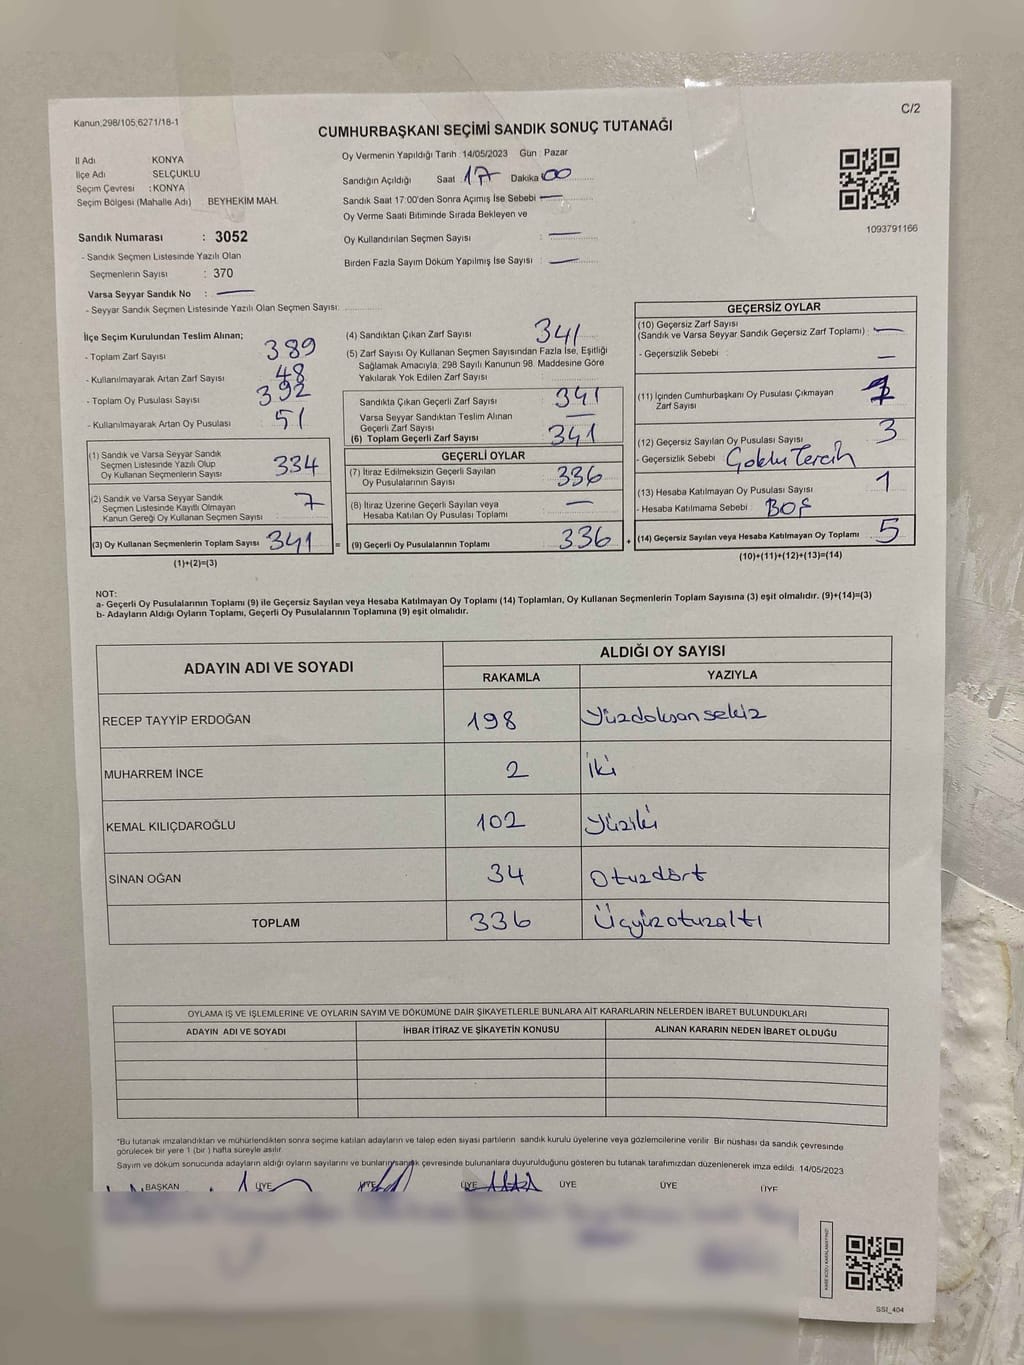 Kanun:298/105;6271/18-1
C/2
CUMHURBAŞKANI SEÇİMİ SANDIK SONUÇ TUTANAĞI
İl Adı KONYA
İlçe Adı SELÇUKLU
Seçim Çevresi : KONYA
Seçim Bölgesi (Mahalle Adı) BEYHEKİM MAH.
Sandık Numarası : 3052
- Sandık Seçmen Listesinde Yazılı Olan
Seçmenlerin Sayısı : 370
Varsa Seyyar Sandık No : —
- Seyyar Sandık Seçmen Listesinde Yazılı Olan Seçmen Sayısı:
Oy Vermenin Yapıldığı Tarih : 14/05/2023 Gün : Pazar
Sandığın Açıldığı Saat : 17 Dakika : 00
Sandık Saat 17:00'den Sonra Açımış İse Sebebi —
Oy Verme Saati Bitiminde Sırada Bekleyen ve
Oy Kullandırılan Seçmen Sayısı : —
Birden Fazla Sayım Döküm Yapılmış İse Sayısı : —
1093791166
İlçe Seçim Kurulundan Teslim Alınan;
- Toplam Zarf Sayısı 389
- Kullanılmayarak Artan Zarf Sayısı 48
- Toplam Oy Pusulası Sayısı 392
- Kullanılmayarak Artan Oy Pusulası 51
(1) Sandık ve Varsa Seyyar Sandık
Seçmen Listesinde Yazılı Olup
Oy Kullanan Seçmenlerin Sayısı 334
(2) Sandık ve Varsa Seyyar Sandık
Seçmen Listesinde Kayıtlı Olmayan
Kanun Gereği Oy Kullanan Seçmen Sayısı 7
(3) Oy Kullanan Seçmenlerin Toplam Sayısı 341 =
(1)+(2)=(3)
(4) Sandıktan Çıkan Zarf Sayısı 341
(5) Zarf Sayısı Oy Kullanan Seçmen Sayısından Fazla İse, Eşitliği
Sağlamak Amacıyla, 298 Sayılı Kanunun 98. Maddesine Göre
Yakılarak Yok Edilen Zarf Sayısı :
Sandıkta Çıkan Geçerli Zarf Sayısı 341
Varsa Seyyar Sandıktan Teslim Alınan
Geçerli Zarf Sayısı —
(6) Toplam Geçerli Zarf Sayısı 341
GEÇERLİ OYLAR
(7) İtiraz Edilmeksizin Geçerli Sayılan
Oy Pusulalarının Sayısı 336
(8) İtiraz Üzerine Geçerli Sayılan veya
Hesaba Katılan Oy Pusulası Toplamı —
(9) Geçerli Oy Pusulalarının Toplamı 336 +
GEÇERSİZ OYLAR
(10) Geçersiz Zarf Sayısı
(Sandık ve Varsa Seyyar Sandık Geçersiz Zarf Toplamı) : —
- Geçersizlik Sebebi : —
(11) İçinden Cumhurbaşkanı Oy Pusulası Çıkmayan
Zarf Sayısı 1
(12) Geçersiz Sayılan Oy Pusulası Sayısı 3
- Geçersizlik Sebebi : Çoklu Tercih
(13) Hesaba Katılmayan Oy Pusulası Sayısı 1
- Hesaba Katılmama Sebebi : BOŞ
(14) Geçersiz Sayılan veya Hesaba Katılmayan Oy Toplamı 5
(10)+(11)+(12)+(13)=(14)
NOT:
a- Geçerli Oy Pusulalarının Toplamı (9) ile Geçersiz Sayılan veya Hesaba Katılmayan Oy Toplamı (14) Toplamları, Oy Kullanan Seçmenlerin Toplam Sayısına (3) eşit olmalıdır. (9)+(14)=(3)
b- Adayların Aldığı Oyların Toplamı, Geçerli Oy Pusulalarının Toplamına (9) eşit olmalıdır.
ADAYIN ADI VE SOYADI ALDIĞI OY SAYISI
RAKAMLA YAZIYLA
RECEP TAYYİP ERDOĞAN 198 Yüzdoksansekiz
MUHARREM İNCE 2 İki
KEMAL KILIÇDAROĞLU 102 Yüziki
SİNAN OĞAN 34 Otuzdört
TOPLAM 336 Üçyüzotuzaltı
OYLAMA İŞ VE İŞLEMLERİNE VE OYLARIN SAYIM VE DÖKÜMÜNE DAİR ŞİKAYETLERLE BUNLARA AİT KARARLARIN NELERDEN İBARET BULUNDUKLARI
ADAYIN ADI VE SOYADI İHBAR İTİRAZ VE ŞİKAYETİN KONUSU ALINAN KARARIN NEDEN İBARET OLDUĞU
*Bu tutanak imzalandıktan ve mühürlendikten sonra seçime katılan adayların ve talep eden siyasi partilerin sandık kurulu üyelerine veya gözlemcilerine verilir. Bir nüshası da sandık çevresinde
görülecek bir yere 1 (bir) hafta süreyle asılır.
Sayım ve döküm sonucunda adayların aldığı oyların sayılarını ve bunların sandık çevresinde bulunanlara duyurulduğunu gösteren bu tutanak tarafımızdan düzenlenerek imza edildi. 14/05/2023
BAŞKAN ÜYE ÜYE ÜYE ÜYE ÜYE ÜYE
SSI_404